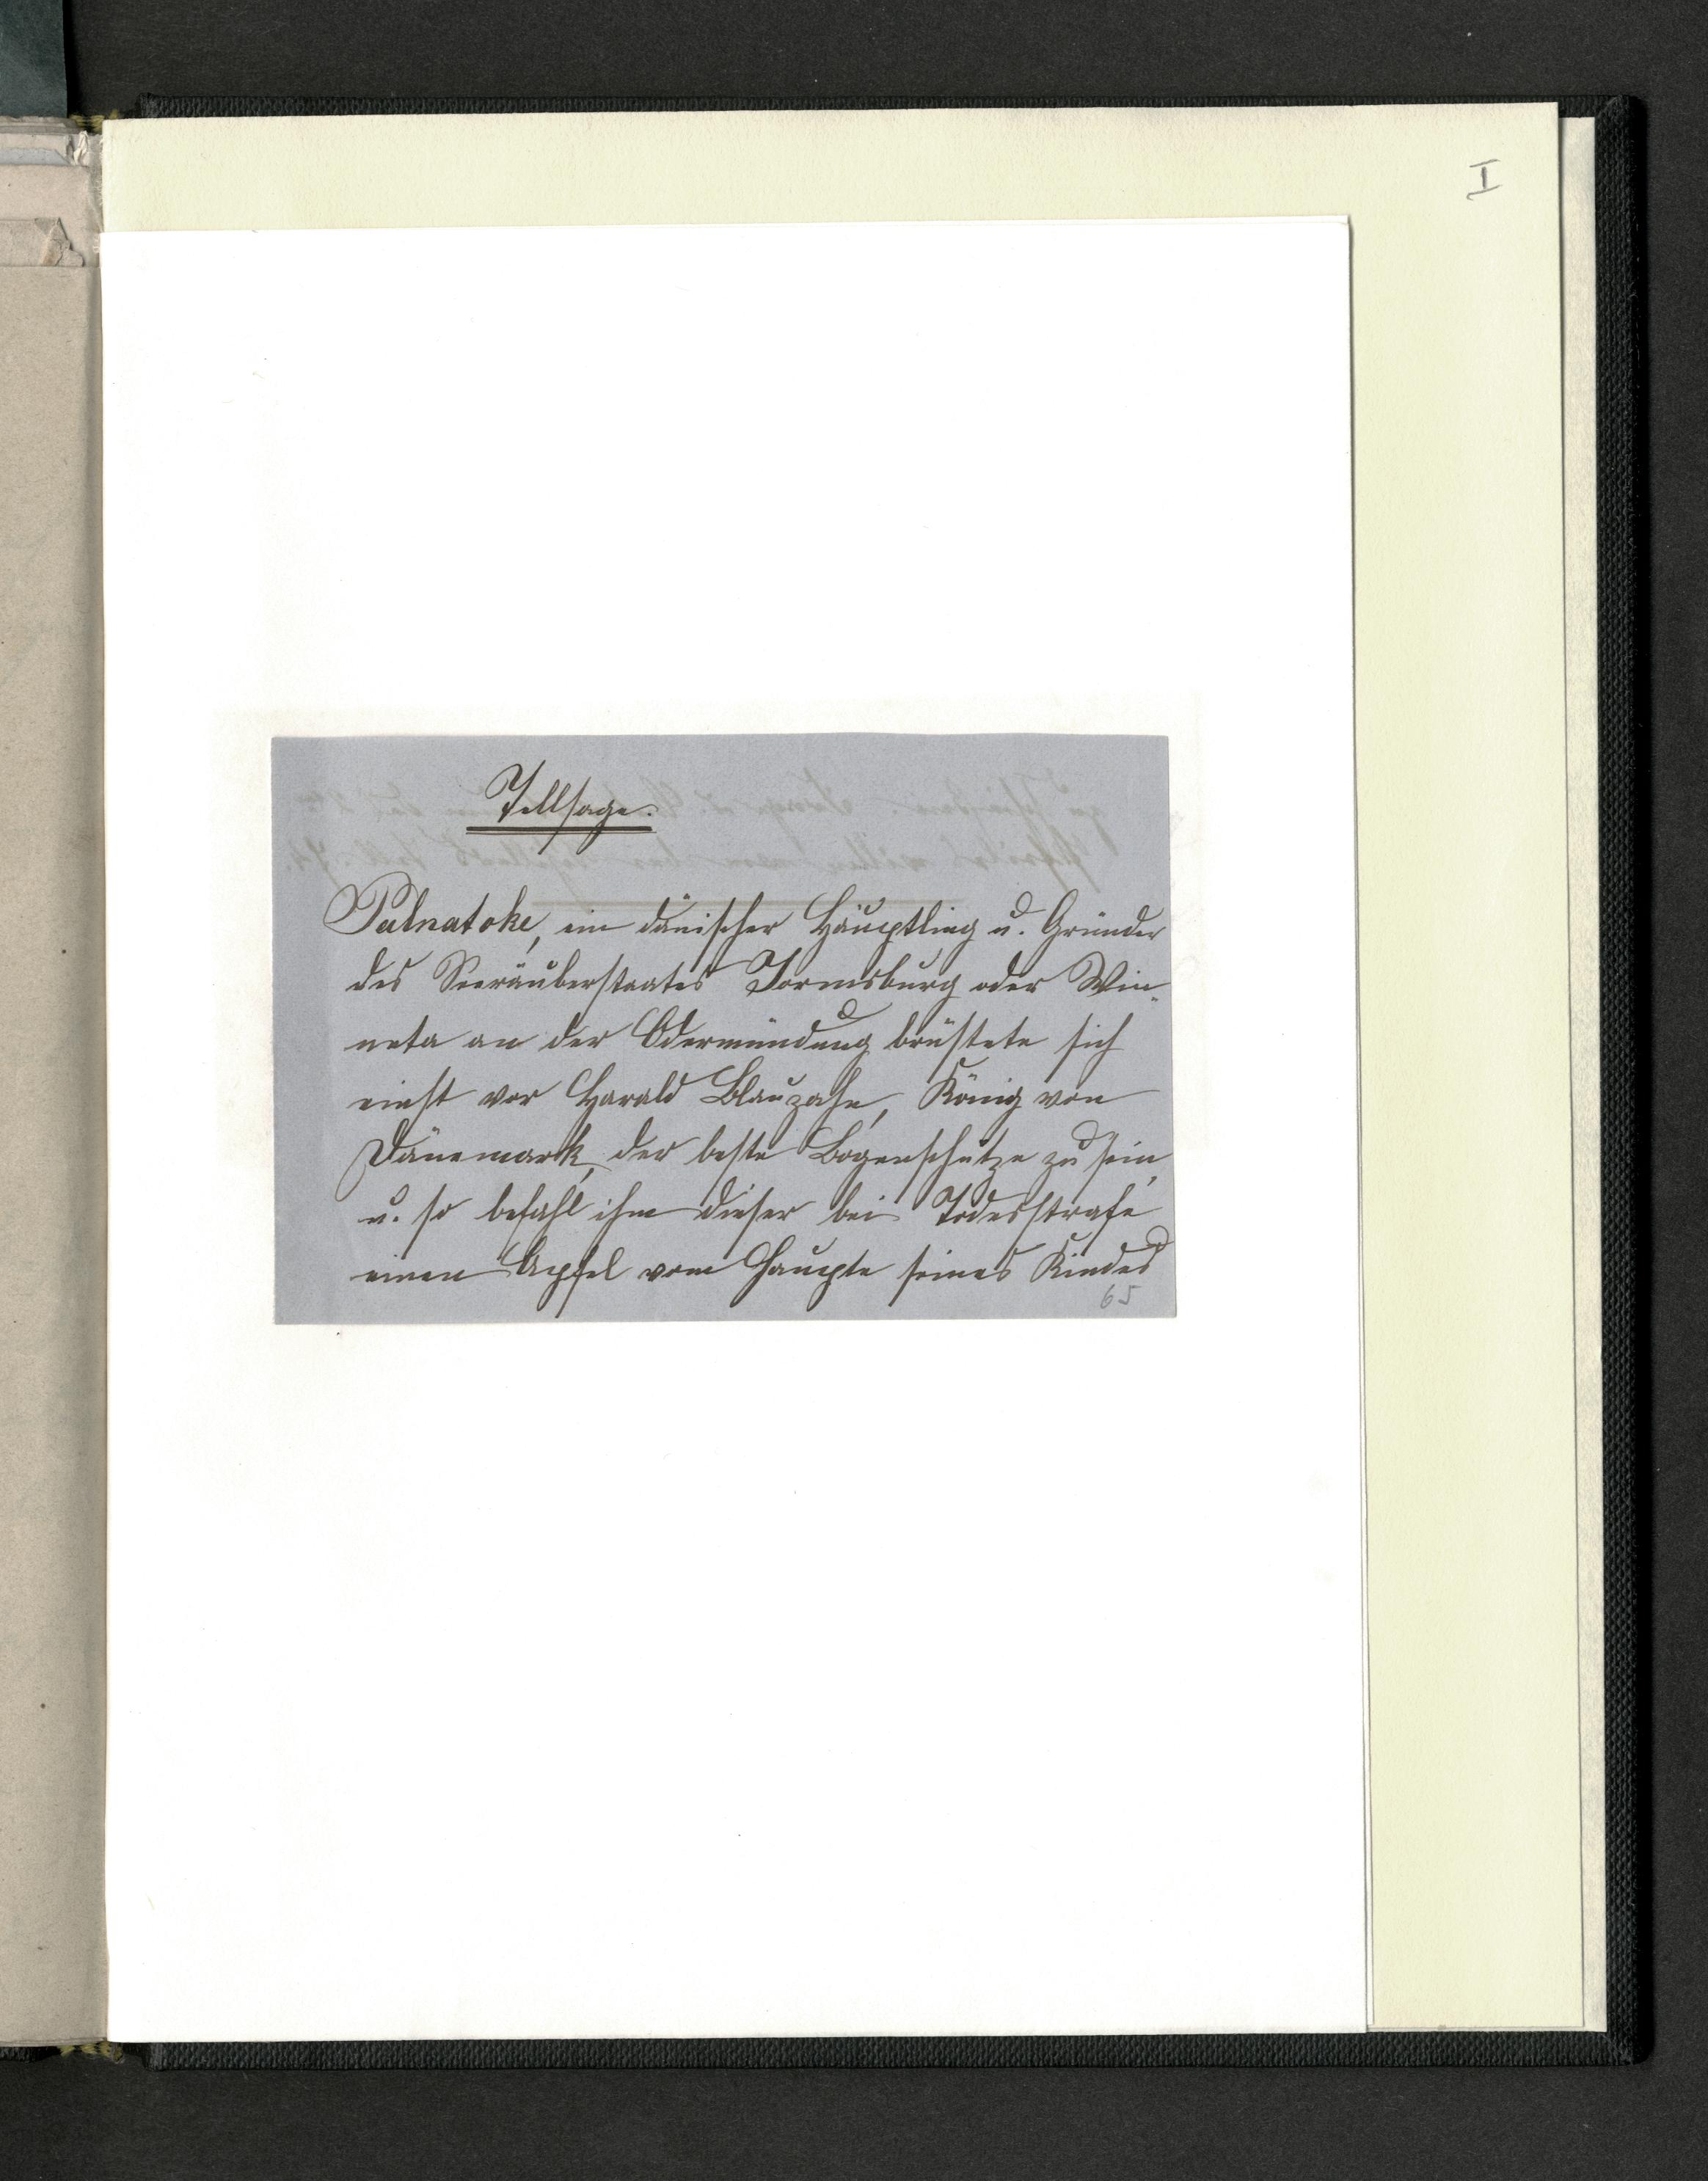 I
Tellsage.
Palnatoke, ein dänischer Häuptling u. Gründer
des Seeräuberstaates Jormsburg oder Win-
neta an der Odermündung brüstete sich
einst vor Harald Blauzahn, König von
Dänemark, der beste Bogenschütze zu sein,
u. so befahl ihm dieser bei Todesstrafe
einen Apfel vom Haupte seines Kindes
65